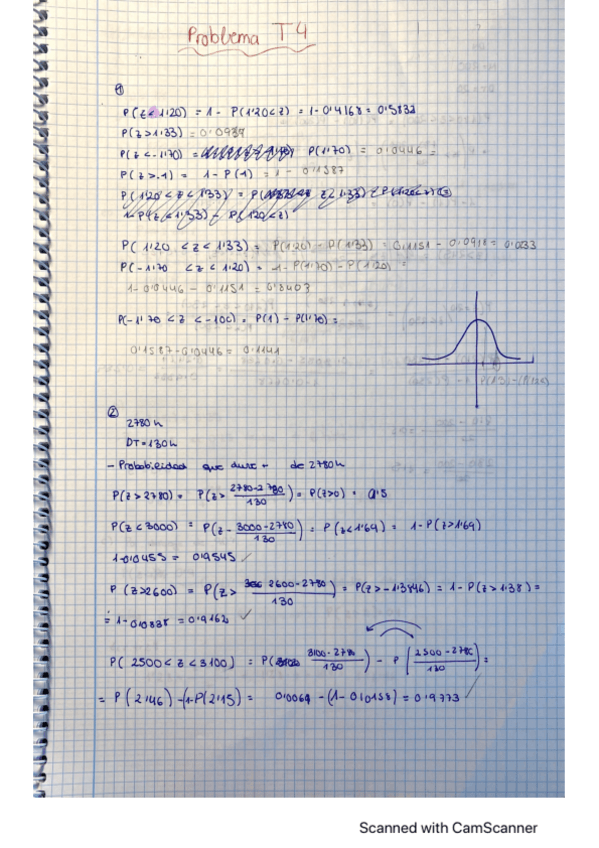 Problema T4
①
P(z<1'20) = 1 - P(1'20<z) = 1-0'4168 = 0'5832
P(z>1'33) = 0'0934
P(z<-1'70) = P(1'70) = 0'0446 =
P(z>-1) = 1 - P(1) = 1 - 0'1587
P(1'20<z<1'33) = P( z<1'33) - P(1'20<z)
1-P(z<1'33) - P(1'20<z)
P(1'20 <z<1'33) = P(1'20) - P(1'33) = 0,1151 - 0'0918 = 0'033
P(-1'70 <z<1'20) = 1-P(1'70) - P(1'20) =
1-0'0446 - 0'1151 = 0'8403
P(-1'70 <z< -1'00) = P(1) - P(1'70) =
0'1587-0'0446 = 0'1141
②
2780 h
DT=130h
- Probabilidad que dure + de 2780h
P(z>2780) = P(z> 2780-2780/130) = P(z>0) = 0'5
P(z<3000) = P(z- 3000-2780/130) = P(z<1'69) = 1-P(z>1'69)
1-0'0455 = 0'9545 ✓
P(z>2600) = P(z> 2600-2780/130) = P(z>-1'3846) = 1-P(z>1'38) =
= 1-0'0838 = 0'9162 ✓
P(2500<z<3100) = P( 3100-2780/130) - P(2500-2780/130) =
= P(2'46) -(1-P(2'15) = 0'0069 -(1-0'0158) = 0'9773 ✓
Scanned with CamScanner